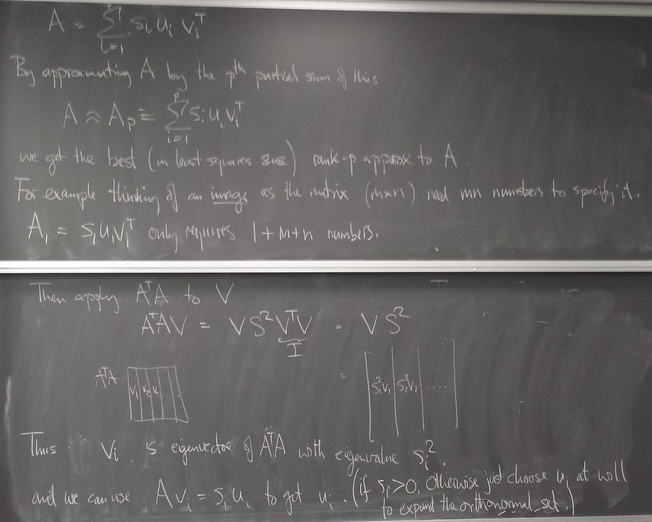 A = Σ_{i=1}^{r} s_i u_i v_i^T
By approximating A by the pth partial sum of this
A ≈ A_p ≡ Σ_{i=1}^{p} s_i u_i v_i^T
we get the best (in least squares sense) rank-p approx to A.
For example thinking of an image as the matrix (m×n) need mn numbers to specify it.
A_1 = s_1 u_1 v_1^T only requires 1+m+n numbers.
Then apply A^T A to V
A^T A V = V S^2 V^T V = V S^2
I
A^T A [v_1 | v_2 | ...] = [s_1^2 v_1 | s_2^2 v_2 | ....]
Thus v_i is eigenvector of A^T A with eigenvalue s_i^2.
and we can use A v_i = s_i u_i to get u_i. (if s_i>0, otherwise just choose u_i at will
to expand the orthonormal set.)